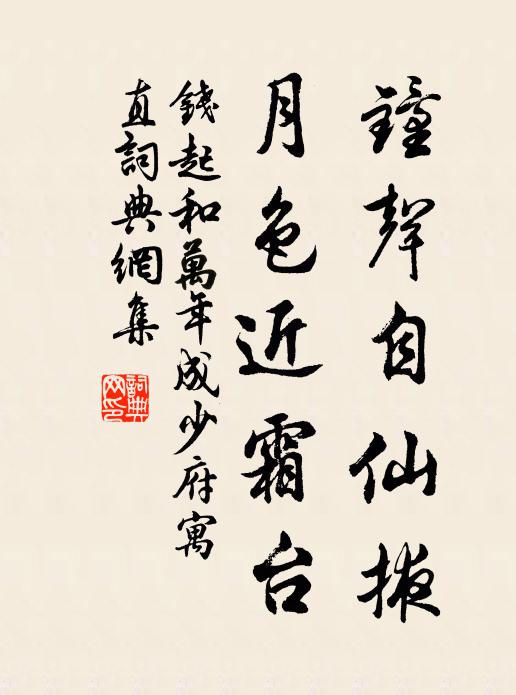 鐘聲自仙掖
月色近霜台
錢起和萬年成少府寓
直詞典網集
詞典
网印